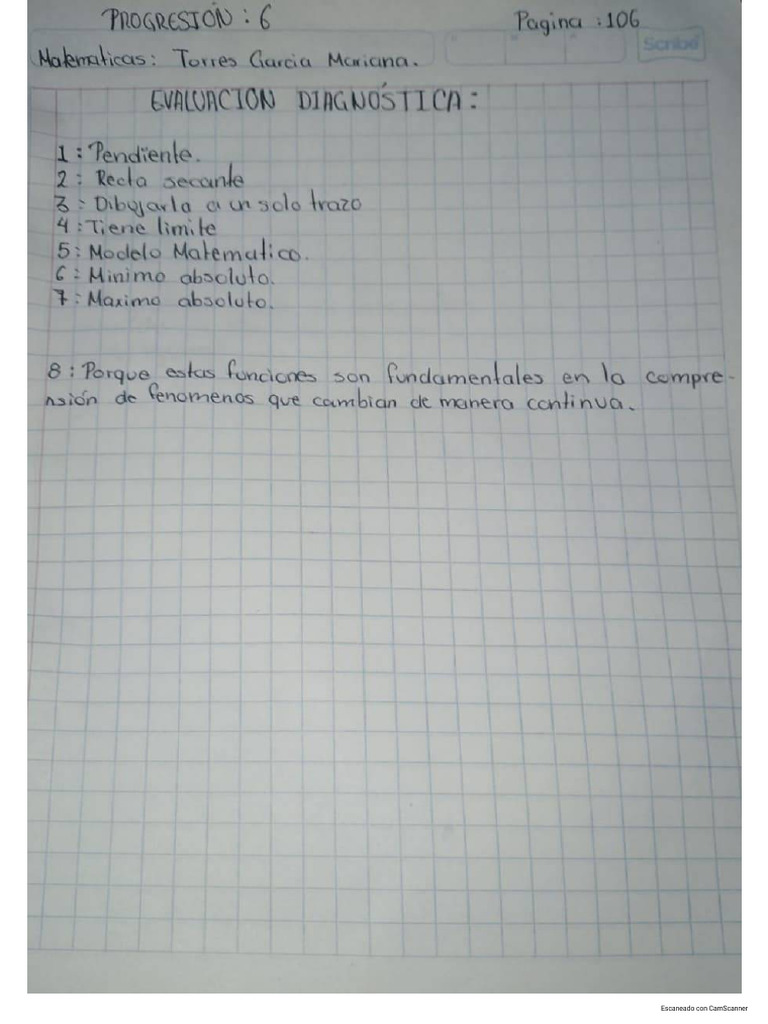 PROGRESIÓN : 6
Pagina : 106
Scribe
Matematicas: Torres Garcia Mariana.
EVALUACION DIAGNÓSTICA :
1 : Pendiente.
2 : Recta secante
3 : Dibujarla a un solo trazo
4 : Tiene limite
5 : Modelo Matematico.
6 : Minimo absoluto.
7 : Maximo absoluto.
8 : Porque estas funciones son fundamentales en la compre-
nsión de fenomenos que cambian de manera continua.
Escaneado con CamScanner